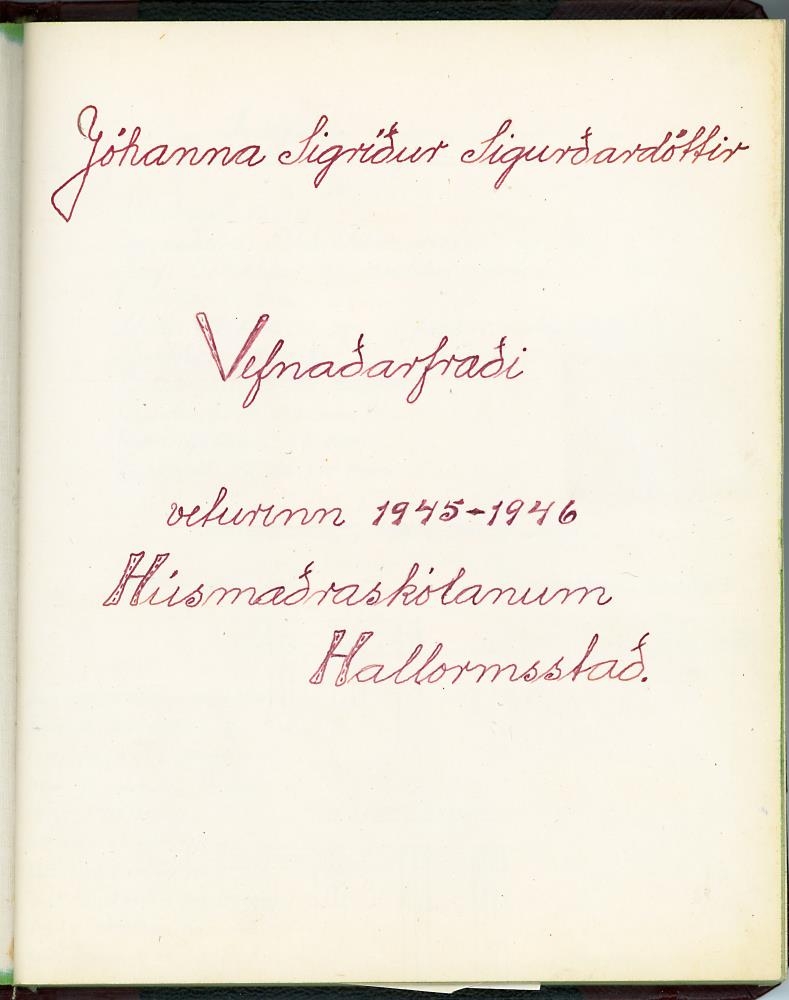 Jóhanna Sigríður Sigurðardóttir
Vefnaðarfræði
veturinn 1945-1946
Húsmæðraskólanum
Hallormsstað.